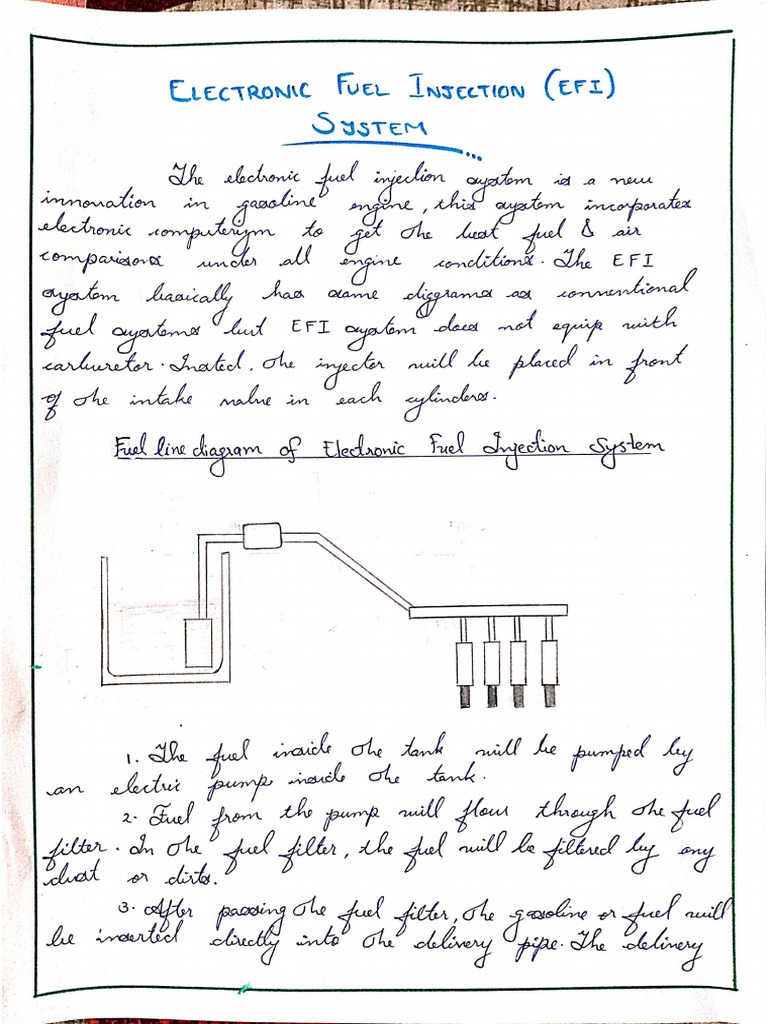 ELECTRONIC FUEL INJECTION (EFI)
SYSTEM
The electronic fuel injection system is a new
innovation in gasoline engine, this system incorporates
electronic computerym to get the best fuel & air
comparisons under all engine conditions. The EFI
system basically has same diggrams as conventional
fuel systems but EFI system does not equip with
carburetor. Insted, the injector will be placed in front
of the intake valve in each cylinders.
Fuel line diagram of Electronic Fuel Injection System
1. The fuel inside the tank will be pumped by
an electric pump inside the tank.
2. Fuel from the pump will flow through the fuel
filter. In the fuel filter, the fuel will be filtered by any
dust or dirts.
3. After passing the fuel filter, the gasoline or fuel will
be inserted directly into the delivery pipe. The delivery